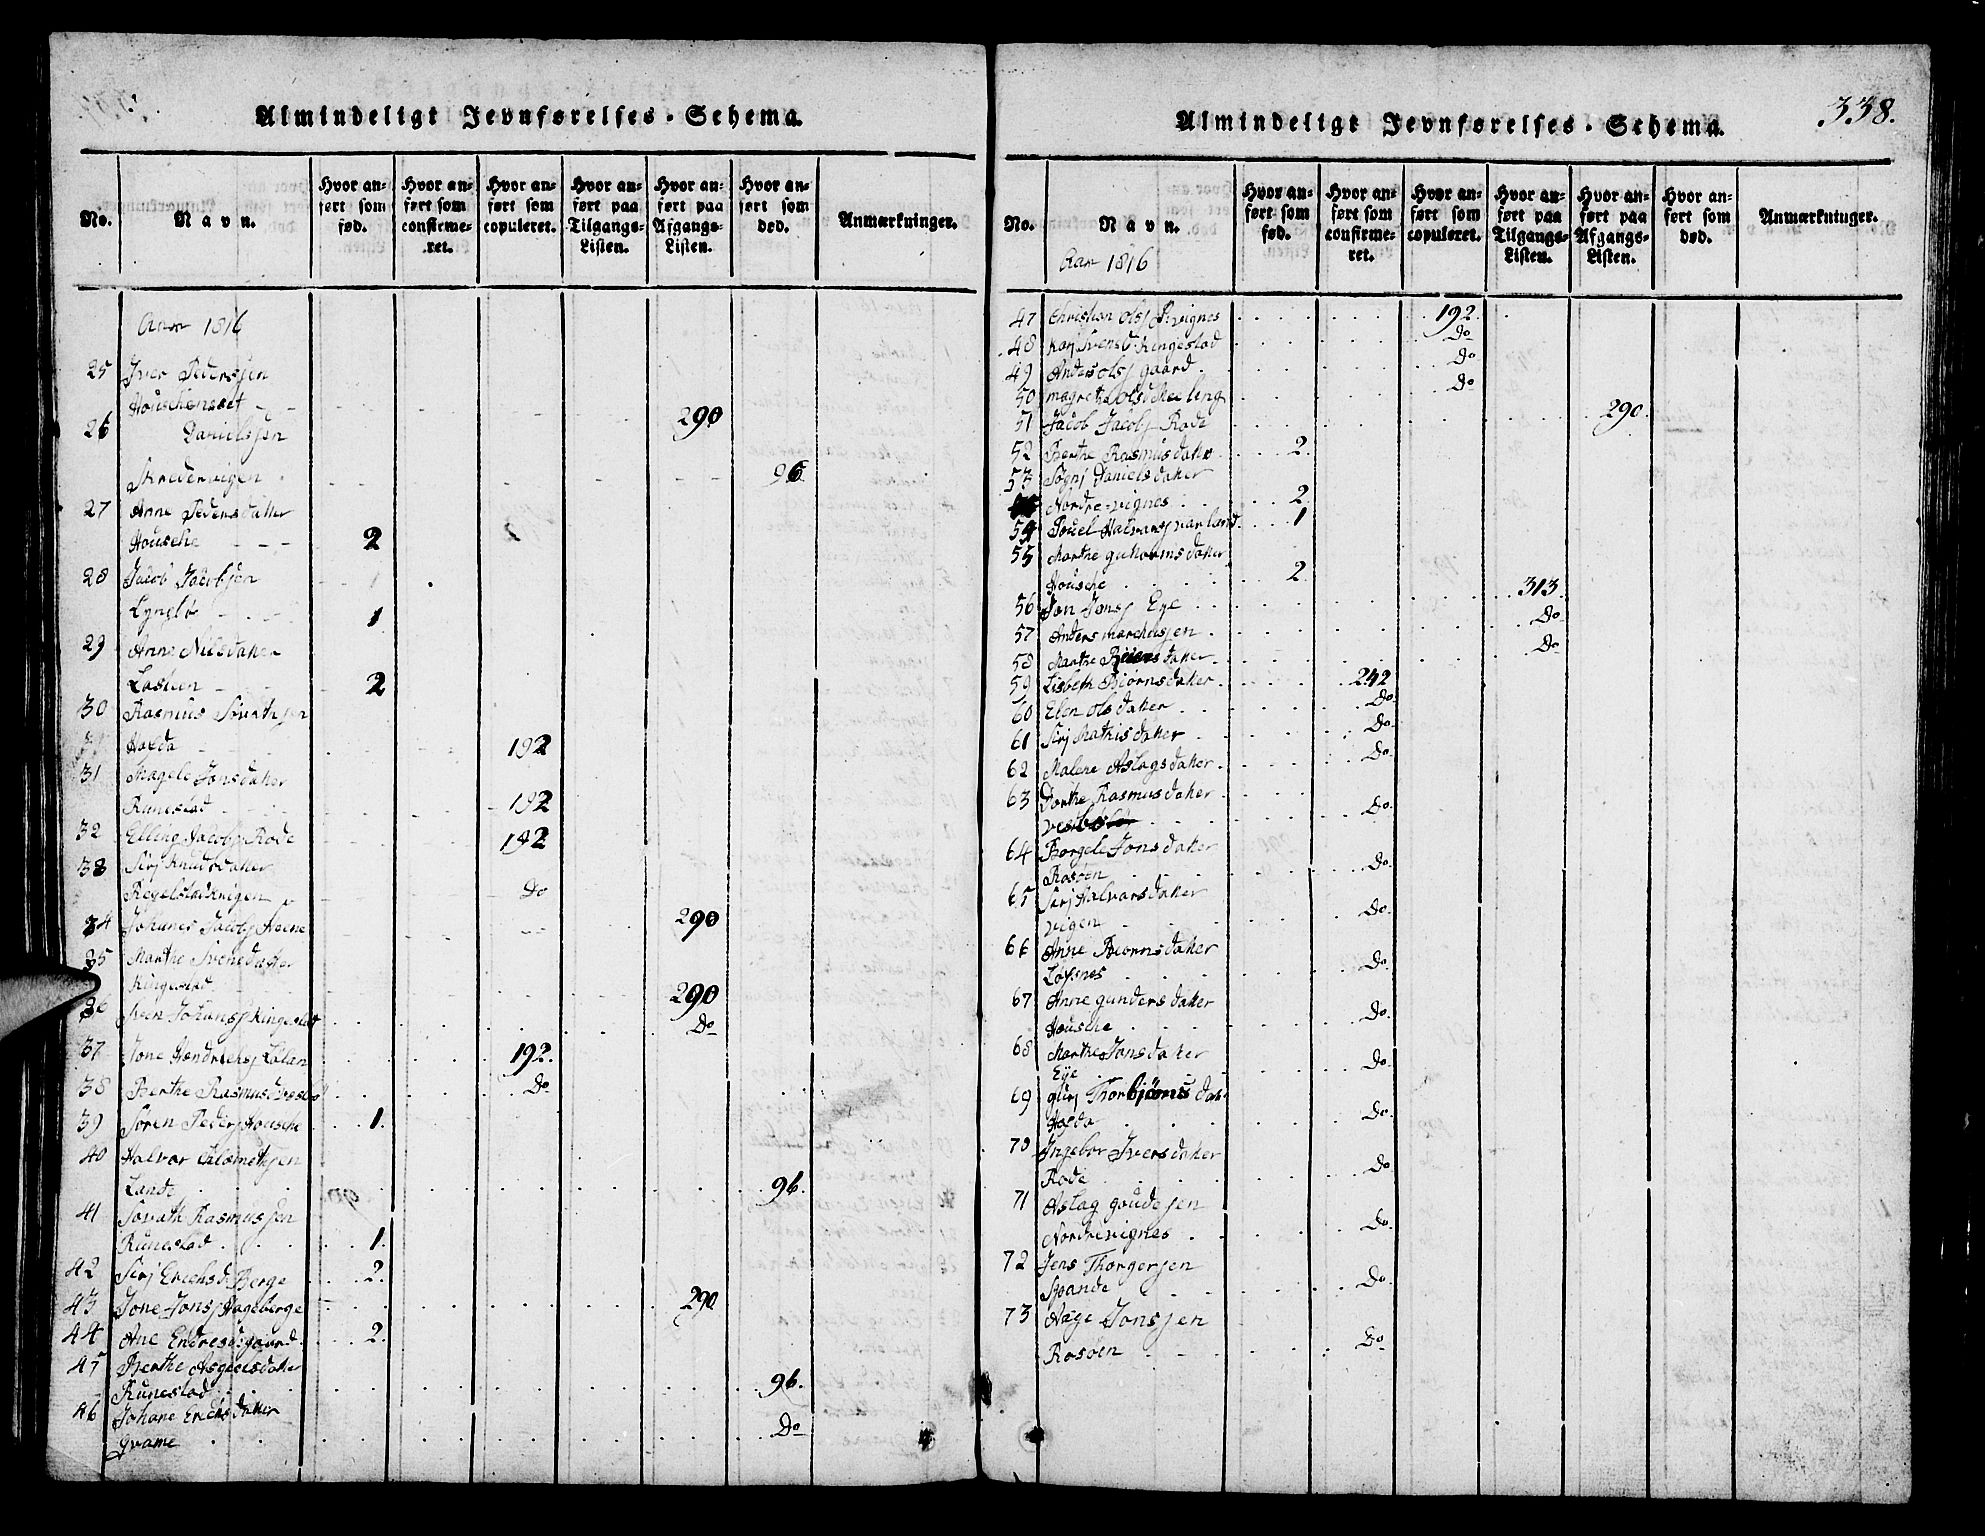 Almindeligt Jevnførelses-Schema.
No. Navn. Hvor anført som fød. Hvor anført som confirmeret. Hvor anført som copuleret. Hvor anført paa Tilgangs-Listen. Hvor anført paa Afgangs-Listen. Hvor anført som død. Anmærkninger.
Aar 1816
25 Iver Pedersjen
290
26 Danielsjen
96
27 Anne Pedersdatter
Housche 2
28 Jacob Jacobsjen
1
29 Anne Nilsdatter
2
30 Rasmus
192
31 Magele Jonsdatter
Runestad 192
32 Elling Jacobsj Rode 192
33 Sirj Knudsdatter
Do
34 Johanes Jacobsj 290
35 Marthe Svensdatter
Ringestad 290
36 Sven Johansj Ringestad Do
37 Jone Hendrichsj 192.
38 Berthe Rasmusd Do
39 Søren Pedersj Housche 1.
40 Halvor
Lande 96.
41 Rasmusjen
Runestad 1.
42 Sirj Erichsd Berge 2.
43 Jone Jonsj Hageberge 290
44 Ane Endresd gaard 2.
45 Berthe Asgeirsdatter
Runestad 96.
46 Johane Erichsdatter
Qvame Do
338.
Almindeligt Jevnførelses-Schema.
No. Navn. Hvor anført som fød. Hvor anført som confirmeret. Hvor anført som copuleret. Hvor anført paa Tilgangs-Listen. Hvor anført paa Afgangs-Listen. Hvor anført som død. Anmærkninger.
Aar 1816
47 Christian Olsj 192.
48 Svensd Ringestad Do
49 Anders Olsj gaard Do
50 Magrete Olsd Do
51 Jacob Jacobsj Rode 290.
52 Berthe Rasmusdatter 2.
53 Danielsdatter
Nordre-vignes 2.
54 Pouel 1
55 Marthe guttormsdatter
Housche 2.
56 Jon Jonsj Eye 313
57 Anders Do
58 Marthe Reiersdatter Do
59 Lisbeth Biørnsdatter 242
60 Elen Olsdatter Do
61 Sirj Mathisdatter Do
62 Malene Aslagsdatter Do
63 Dorthe Rasmusdatter
Do
64 Borgele Jonsdatter
Rosøen Do
65 Sirj Halvorsdatter
Vigen Do.
66 Anne Biørnsdatter
Do
67 Anne gundersdatter
Housche Do
68 Marthe Jonsdatter
Eye Do
69 gurj Thorbjørns dat
Do
70 Ingebor Iversdatter
Rode Do
71 Aslag goudesjen
Nordrevignes Do
72 Jens Thorgersjen
Do
73 Aage Jonsjen
Rosøen Do